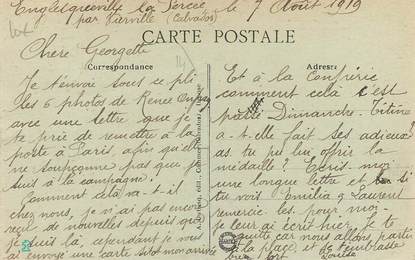 Englesqueville la Percée le 7 Août 1919
par Vierville (Calvados)
CARTE POSTALE
Correspondance
Adresse
Chere Georgette
Je t'envoie sous ce pli
les 6 photos de Renée
avec une lettre que je
te prie de remettre à la
poste à Paris afin qu'elle
ne soupçonne pas que je
suis à la campagne.
Comment cela va-t-il
chez nous, je n'ai pas encore
reçu de nouvelles depuis que
je suis là, cependant je vous
ai envoyé une carte selon mon arrivée
Et à la Confrérie
comment cela s'est
passé Dimanche. Titine
a-t-elle fait ses adieux?
as-tu pu lui offrir la
médaille? Ecris-moi
une longue lettre et si
tu vois Emilia & Laurent
remercie-les pour moi
je leur ai écrit hier. Je te
quitte car nous allons partir
à la plage, et je t'embrasse
bien fort Louise